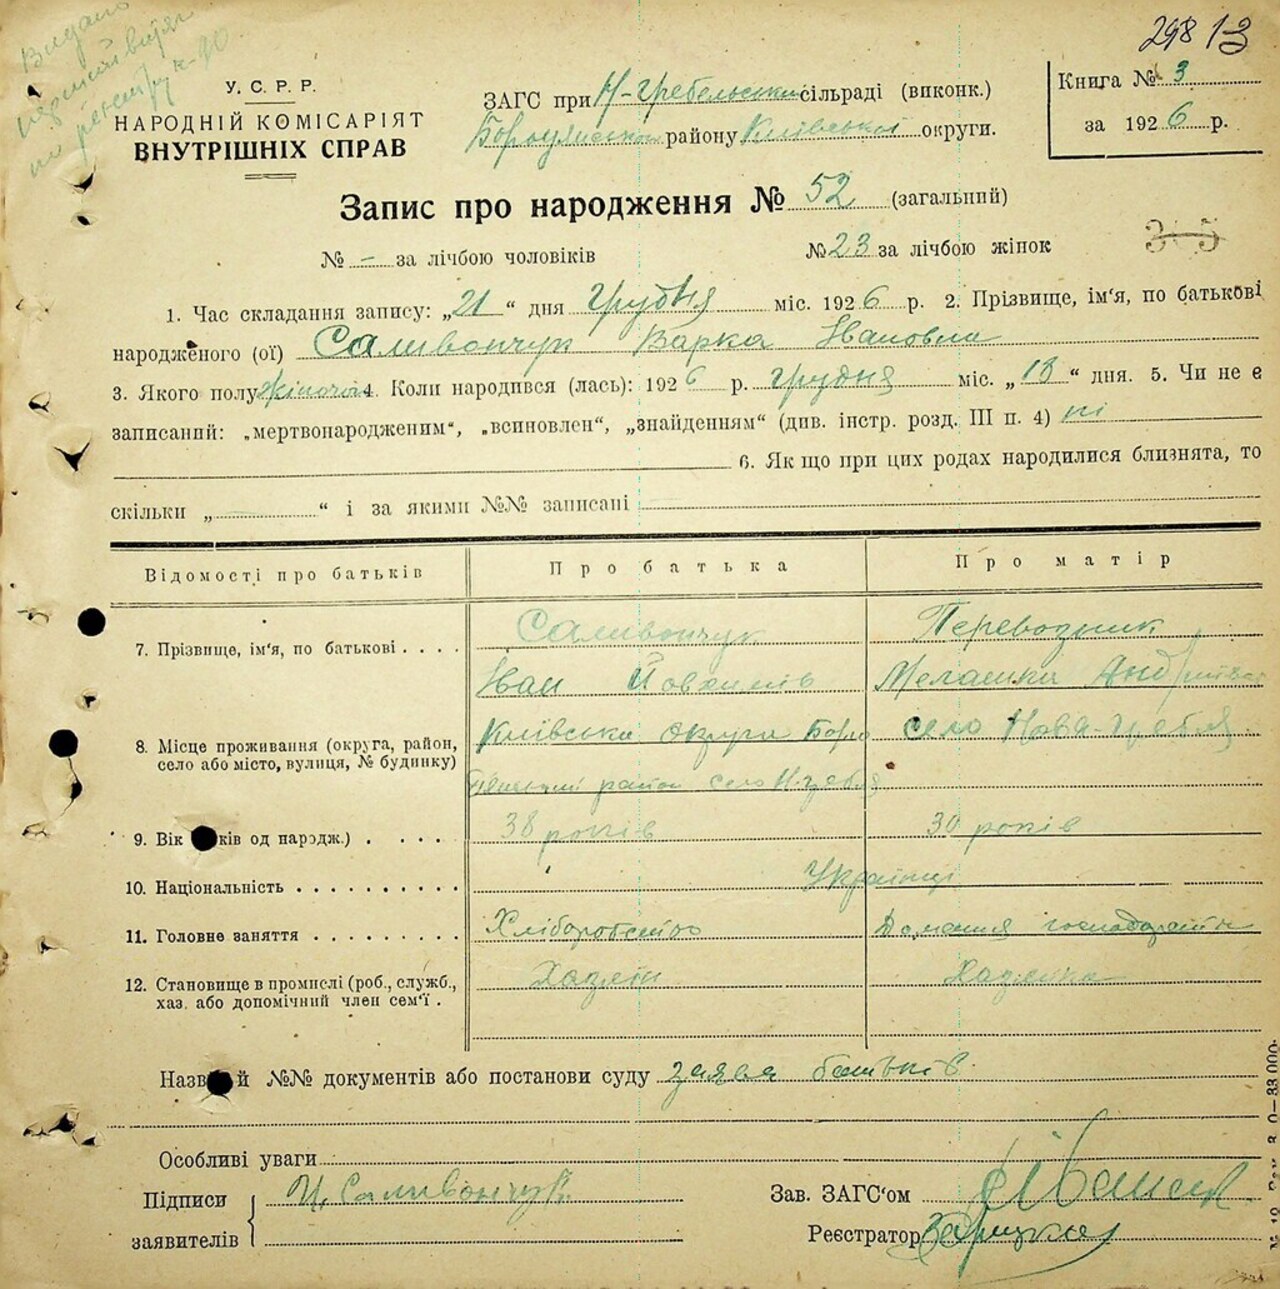 298 13
У. С. Р. Р.
НАРОДНІЙ КОМІСАРІЯТ
ВНУТРІШНІХ СПРАВ
ЗАГС при Н-Гребельськ сільраді (виконк.)
району Київської округи.
Книга № 3
за 1926 р.
Запис про народження № 52 (загальний)
№ - за лічбою чоловіків № 23 за лічбою жінок
35
1. Час складання запису: „21“ дня Грудня міс. 1926 р. 2. Прізвище, ім‘я, по батькові
народженого (ої) Саливончук Варка Івановна
3. Якого полу жіночої 4. Коли народився (лась): 1926 р. грудня міс. „13“ дня. 5. Чи не є
записаний: „мертвонародженим“, „всиновлен“, „знайденням“ (див. інстр. розд. III п. 4) ні
6. Якщо при цих родах народилися близнята, то
скільки „ “ і за якими №№ записані
Відомості про батьків Про батька Про матір
7. Прізвище, ім‘я, по батькові . . . . Саливончук Переводник
Іван Мелашка
8. Місце проживання (округа, район, село або місто, вулиця, № будинку) Київська округа село Нова-Гребля
район село Н. Гребля
9. Вік ків од народж.) . . . . 38 років 30 років
10. Національність . . . . . . . . . . Українці
11. Головне заняття . . . . . . . . . Хліборобство Домашня господарств
12. Становище в промислі (роб., служб., хаз. або допомічний член сем‘ї . Хазяїн Хазяйка
Назв й №№ документів або постанови суду заява батьків.
Особливі уваги
Підписи заявителів Саливончук
Зав. ЗАГС‘ом
Реєстратор Зарицка